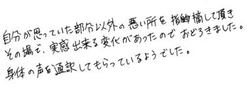 自分が思っていた部分以外の悪い所を指摘して頂き
その場で、実感出来る変化があったのでおどろきました。
身体の声を通訳してもらっているようでした。